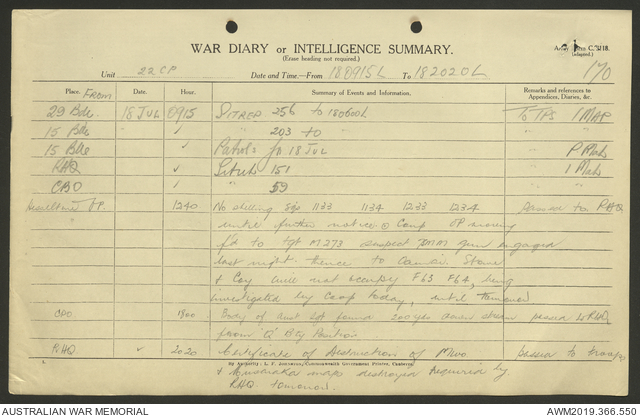 WAR DIARY or INTELLIGENCE SUMMARY.
(Erase heading not required.)
Army Form C. 2118.
(Adapted.)
170
Unit 22 CP Date and Time—From 180915L To 182020L
Place. From Date. Hour. Summary of Events and Information. Remarks and references to Appendices, Diaries, &c.
29 Bde. 18 JUL 0915 SITREP 256 to 180600L To TPS 1 MAP
15 Bde " 203 to "
15 Bde Patrols for 18 JUL
RHQ Sitrep 151 1
CBO " 59
OP. 1240 No shelling Sqs 1133 1134 1233 1234 passed to RHQ
until further notice. Comp OP moving
fwd to tgt M273 suspect gun engaged
last night. thence to
Coy will not occupy F63 F64, being
investigated by Coop today, until
CBO 1800 Body of found 200 yds down stream passed to RHQ
from 'Q' Bty Position
RHQ 2020 Certificate of Destruction of passed to troops
By Authority: L. F. Johnston, Commonwealth Government Printer, Canberra.
maps destroyed required by
RHQ tomorrow.
AUSTRALIAN WAR MEMORIAL
AWM2019.366.550